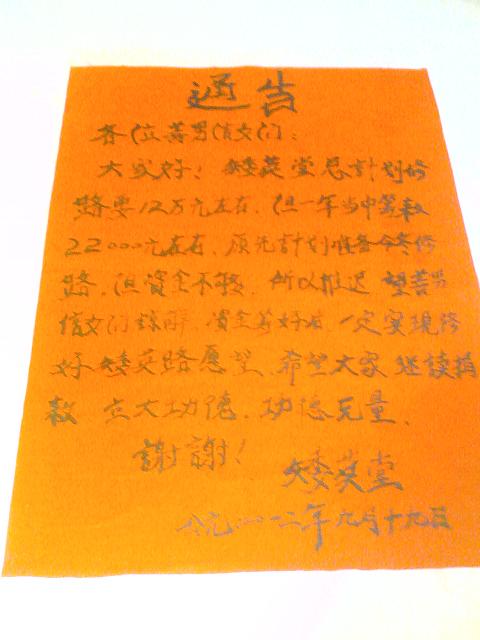 通告
各位善男信女们：
大家好！矮英堂总计划修
路要12万元左右，但一年当中筹款
22000元左右，原先计划准备今冬修
路，但資金不够，所以推迟 望善男
信女们諒解，資金筹好后，一定实現修
好矮英路愿望、希望大家継续捐
款 立大功德，功德无量、
謝謝！
矮英堂
公元二〇一二年九月十九日